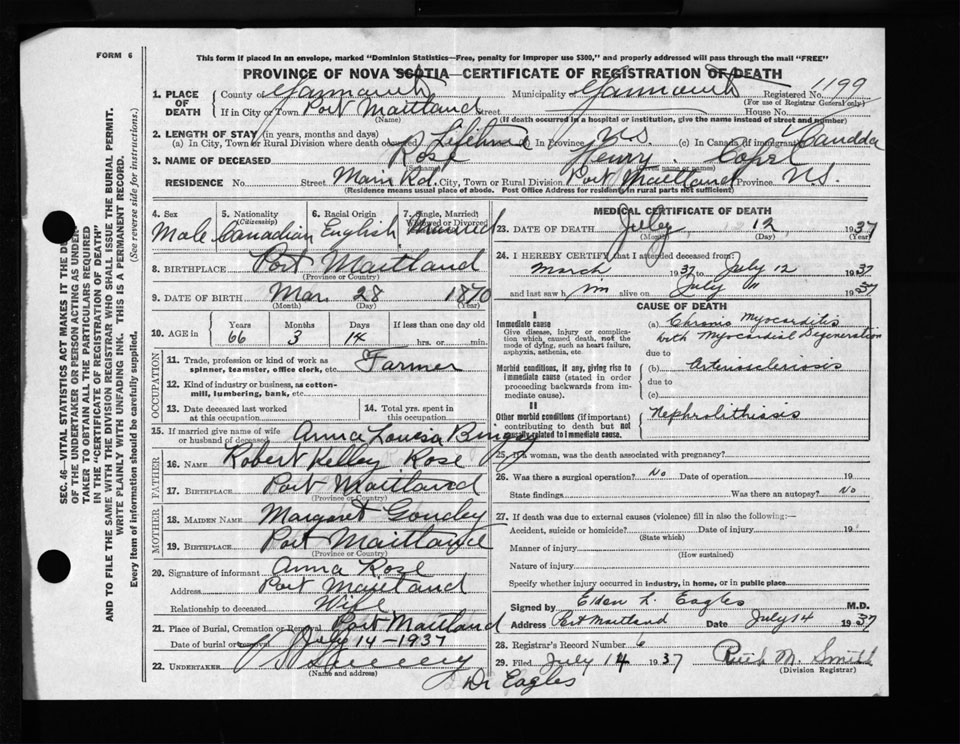 FORM 6
This form if placed in an envelope, marked "Dominion Statistics—Free, penalty for improper use $300," and properly addressed will pass through the mail "FREE"
PROVINCE OF NOVA SCOTIA—CERTIFICATE OF REGISTRATION OF DEATH
1. PLACE OF DEATH County of Yarmouth Municipality of Yarmouth Registered No. 1199
(For use of Registrar General only)
If in City or Town Port Maitland Street House No.
(Name) (If death occurred in a hospital or institution, give the name instead of street and number)
2. LENGTH OF STAY (in years, months and days)
(a) In City, Town or Rural Division where death occurred Lifetime (b) In Province N.S. (c) In Canada if immigrant Canada
3. NAME OF DECEASED Rose Henry
(Surname) (Given name or names)
RESIDENCE No. Street Main Rd. City, Town or Rural Division Port Maitland Province N.S.
(Residence means usual place of abode. Post Office Address for residents in rural parts not sufficient)
4. Sex 5. Nationality (Citizenship) 6. Racial Origin 7. Single, Married, Widowed or Divorced
Male Canadian English Married
8. BIRTHPLACE Port Maitland
(Province or Country)
9. DATE OF BIRTH Mar. 28 1870
(Month) (Day) (Year)
10. AGE in Years Months Days If less than one day old
66 3 14 hrs. or min.
OCCUPATION
11. Trade, profession or kind of work as spinner, teamster, office clerk, etc. Farmer
12. Kind of industry or business, as cotton-mill, lumbering, bank, etc.
13. Date deceased last worked at this occupation
14. Total yrs. spent in this occupation
15. If married give name of wife or husband of deceased Anna Louisa
FATHER
16. NAME Robert Kelley Rose
17. BIRTHPLACE Port Maitland
(Province or Country)
MOTHER
18. MAIDEN NAME Margaret Goudey
19. BIRTHPLACE Port Maitland
(Province or Country)
20. Signature of informant Anna Rose
Address Port Maitland
Relationship to deceased Wife
21. Place of Burial, Cremation or Removal Port Maitland
Date of burial or removal July 14-1937
22. UNDERTAKER
(Name and address)
Dr Eagles
MEDICAL CERTIFICATE OF DEATH
23. DATE OF DEATH July 12 1937
(Month) (Day) (Year)
24. I HEREBY CERTIFY that I attended deceased from
March 1937 to July 12 1937
and last saw h im alive on July 11 1937
CAUSE OF DEATH
I
Immediate cause
Give disease, injury or complication which caused death, not the mode of dying, such as heart failure, asphyxia, asthenia, etc.
(a) Chronic Myocarditis
with Myocardial Degeneration
due to
Morbid conditions, if any, giving rise to immediate cause (stated in order proceeding backwards from immediate cause).
(b) Arteriosclerosis
due to
(c)
II
Other morbid conditions (if important) contributing to death but not causally related to immediate cause.
Nephrolithiasis
25. If a woman, was the death associated with pregnancy?
26. Was there a surgical operation? No Date of operation 19
State findings Was there an autopsy? No
27. If death was due to external causes (violence) fill in also the following:—
Accident, suicide or homicide? Date of injury 19
(State which)
Manner of injury
(How sustained)
Nature of injury
Specify whether injury occurred in industry, in home, or in public place
Signed by Elden L. Eagles M.D.
Address Port Maitland Date July 14 1937
28. Registrar's Record Number 6
29. Filed July 14 1937 Ruth M. Smith
(Division Registrar)
SEC. 46—VITAL STATISTICS ACT MAKES IT THE
OF THE UNDERTAKER OR PERSON ACTING AS UNDER-
TAKER TO OBTAIN ALL THE PARTICULARS REQUIRED
IN THE "CERTIFICATE OF REGISTRATION OF DEATH"
AND TO FILE THE SAME WITH THE DIVISION REGISTRAR WHO SHALL ISSUE THE BURIAL PERMIT.
WRITE PLAINLY WITH UNFADING INK. THIS IS A PERMANENT RECORD.
Every item of information should be carefully supplied. (See reverse side for instructions.)